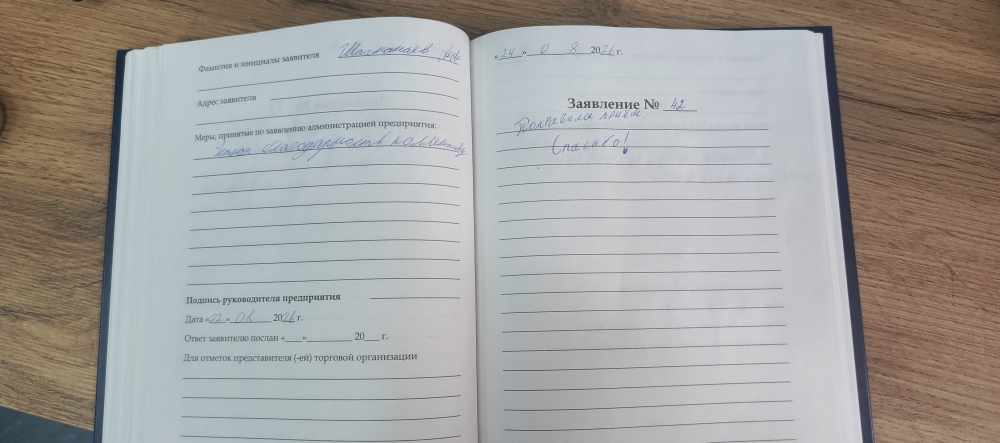 Фамилия и инициалы заявителя
Адрес заявителя
Меры, принятые по заявлению администрацией предприятия:
благодарность
Подпись руководителя предприятия
Дата «22» 08 2026 г.
Ответ заявителю послан «    »            20    г.
Для отметок представителя (-ей) торговой организации
«24» 0 8 2026 г.
Заявление № 42
Спасибо!